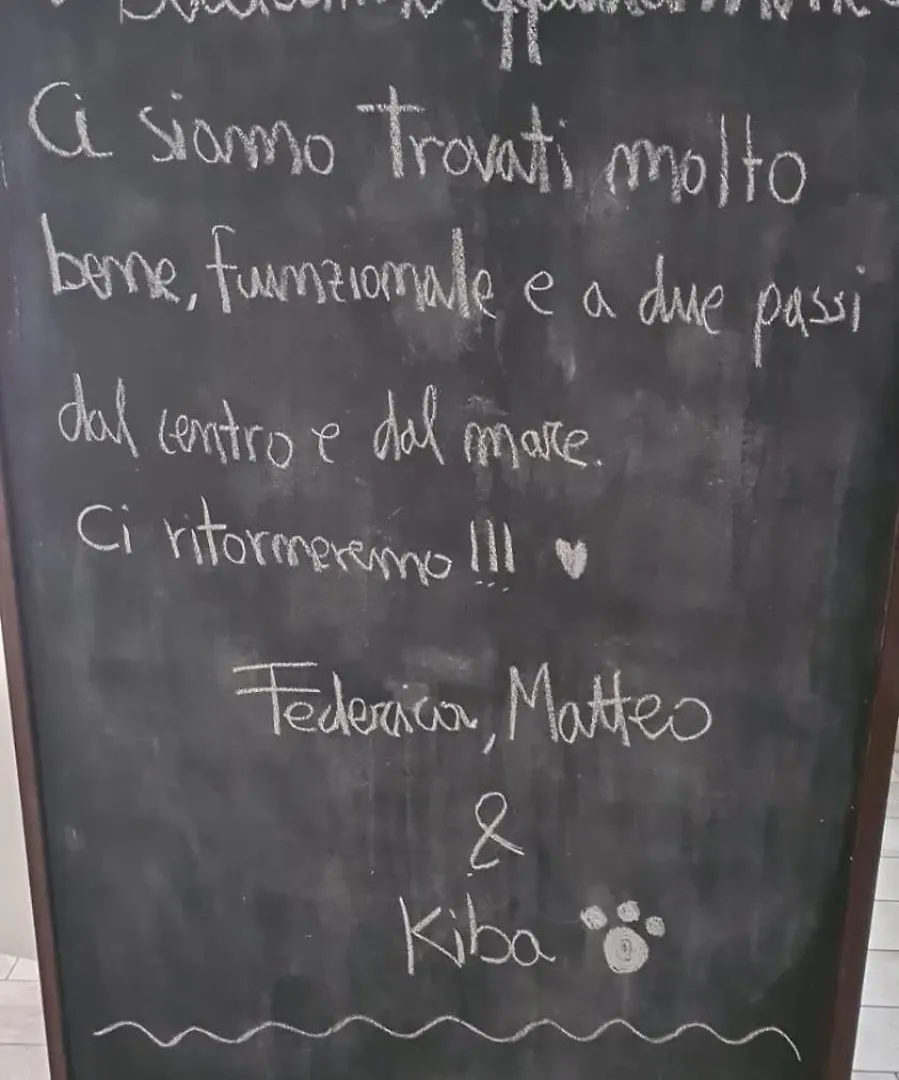 Ci siamo Trovati molto
bene, funzionale e a due passi
dal centro e dal mare.
Ci ritorneremo !!! ♥
Federica, Matteo
&
Kiba